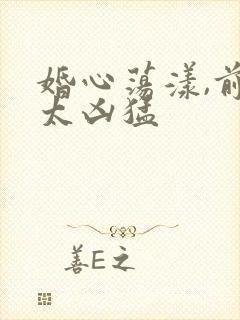 婚心荡漾,前
太凶猛
善E之